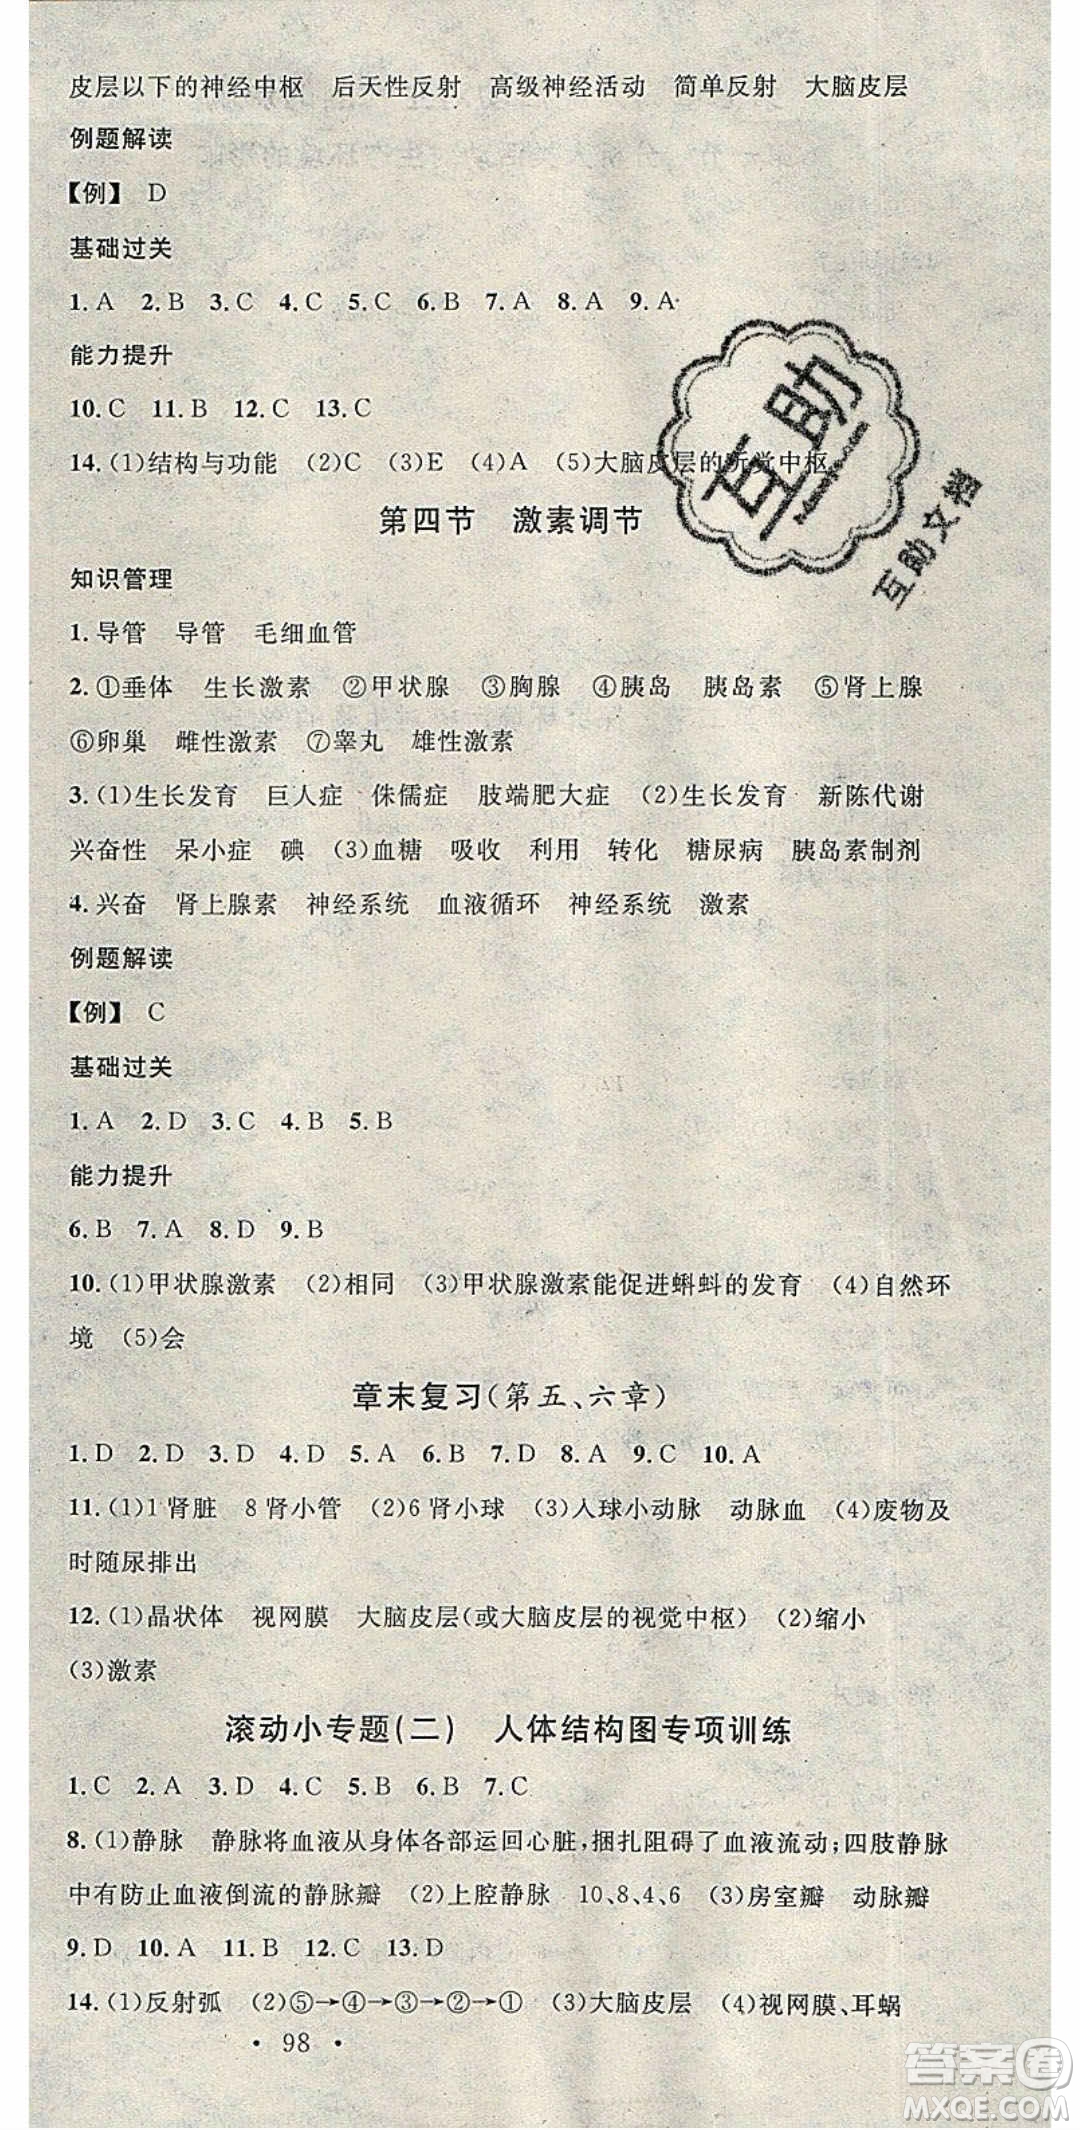 皮层以下的神经中枢 后天性反射 高级神经活动 简单反射 大脑皮层
例题解读
【例】 D
基础过关
1.A 2.B 3.C 4.C 5.C 6.B 7.A 8.A 9.A
能力提升
10.C 11.B 12.C 13.C
14.(1)结构与功能 (2)C (3)E (4)A (5)大脑皮层的听觉中枢
互助
互助文档
第四节 激素调节
知识管理
1.导管 导管 毛细血管
2.①垂体 生长激素 ②甲状腺 ③胸腺 ④胰岛 胰岛素 ⑤肾上腺
⑥卵巢 雌性激素 ⑦睾丸 雄性激素
3.(1)生长发育 巨人症 侏儒症 肢端肥大症 (2)生长发育 新陈代谢
兴奋性 呆小症 碘 (3)血糖 吸收 利用 转化 糖尿病 胰岛素制剂
4.兴奋 肾上腺素 神经系统 血液循环 神经系统 激素
例题解读
【例】 C
基础过关
1.A 2.D 3.C 4.B 5.B
能力提升
6.B 7.A 8.D 9.B
10.(1)甲状腺激素 (2)相同 (3)甲状腺激素能促进蝌蚪的发育 (4)自然环
境 (5)会
章末复习(第五、六章)
1.D 2.D 3.D 4.D 5.A 6.B 7.D 8.A 9.C 10.A
11.(1)1 肾脏 8 肾小管 (2)6 肾小球 (3)入球小动脉 动脉血 (4)废物及
时随尿排出
12.(1)晶状体 视网膜 大脑皮层(或大脑皮层的视觉中枢) (2)缩小
(3)激素
滚动小专题(二) 人体结构图专项训练
1.C 2.A 3.D 4.C 5.B 6.B 7.C
8.(1)静脉 静脉将血液从身体各部运回心脏,捆扎阻碍了血液流动;四肢静脉
中有防止血液倒流的静脉瓣 (2)上腔静脉 10、8、4、6 (3)房室瓣 动脉瓣
9.D 10.A 11.B 12.C 13.D
14.(1)反射弧 (2)⑤→④→③→②→① (3)大脑皮层 (4)视网膜、耳蜗
· 98 ·
答案圈
MXQE.COM